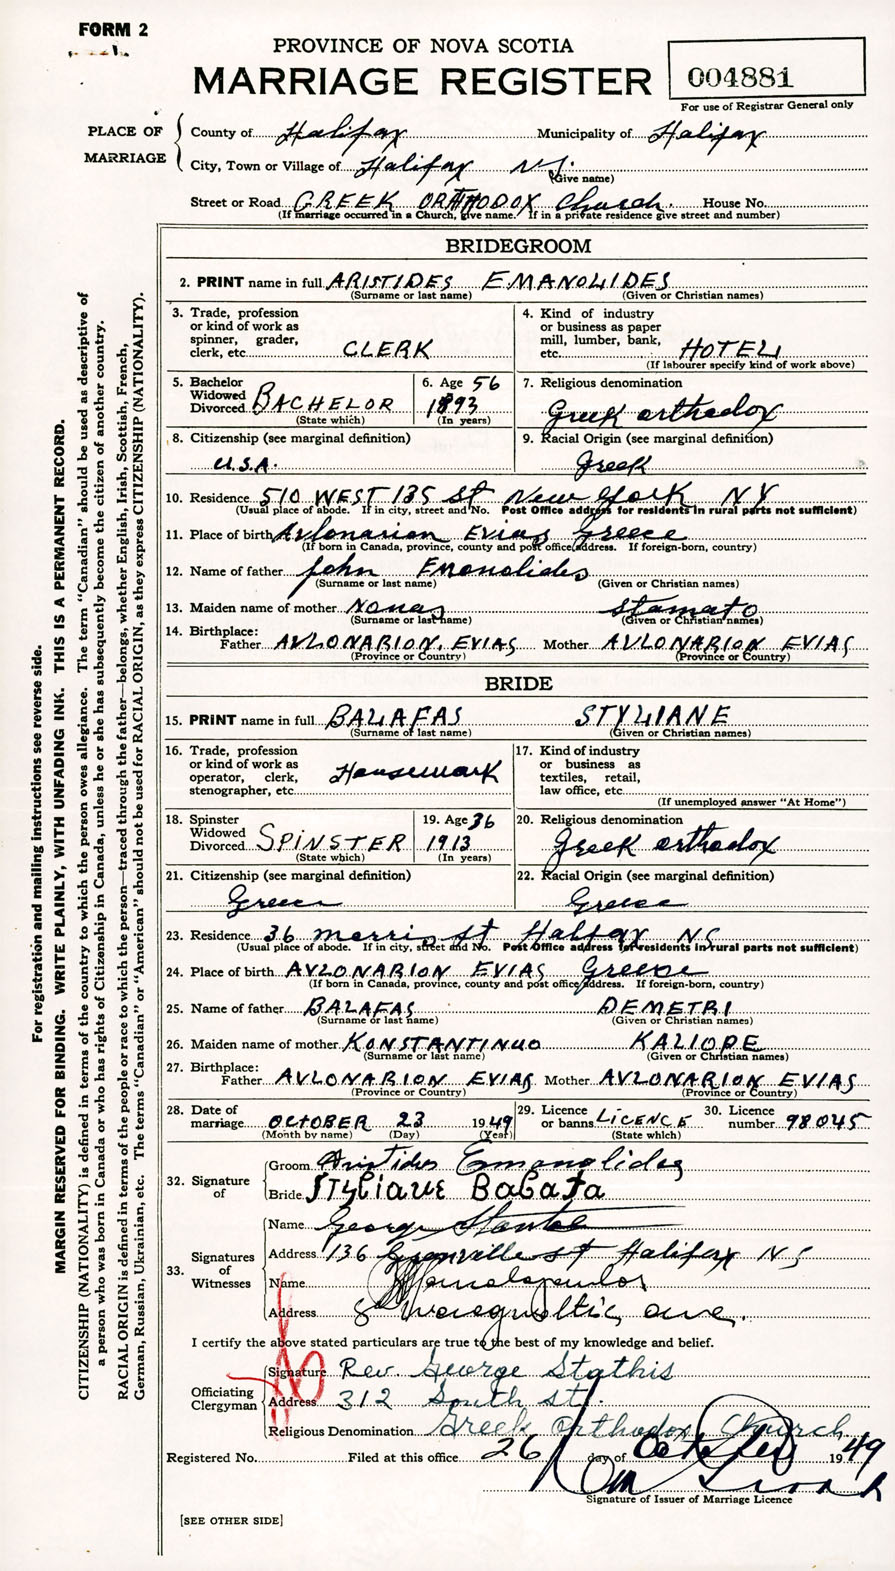 FORM 2
PROVINCE OF NOVA SCOTIA
MARRIAGE REGISTER
004881
For use of Registrar General only
PLACE OF MARRIAGE
County of Halifax Municipality of Halifax
City, Town or Village of Halifax N.S.
(Give name)
Street or Road GREEK ORTHODOX Church House No.
(If marriage occurred in a Church, give name. If in a private residence give street and number)
BRIDEGROOM
2. PRINT name in full ARISTIDES EMANOLIDES
(Surname or last name) (Given or Christian names)
3. Trade, profession or kind of work as spinner, grader, clerk, etc. CLERK
4. Kind of industry or business as paper mill, lumber, bank, etc. HOTEL
(If labourer specify kind of work above)
5. Bachelor Widowed Divorced BACHELOR
(State which)
6. Age 56
1893
(In years)
7. Religious denomination
Greek orthodox
8. Citizenship (see marginal definition)
U.S.A.
9. Racial Origin (see marginal definition)
Greek
10. Residence 510 WEST 135 St New York NY
(Usual place of abode. If in city, street and No. Post Office address for residents in rural parts not sufficient)
11. Place of birth Avlonarion Evias Greece
(If born in Canada, province, county and post office address. If foreign-born, country)
12. Name of father John Emanolides
(Surname or last name) (Given or Christian names)
13. Maiden name of mother Nonas Stamato
(Surname or last name) (Given or Christian names)
14. Birthplace:
Father AVLONARION. EVIAS Mother AVLONARION EVIAS
(Province or Country) (Province or Country)
BRIDE
15. PRINT name in full BALAFAS STYLIANE
(Surname or last name) (Given or Christian names)
16. Trade, profession or kind of work as operator, clerk, stenographer, etc. Housework
17. Kind of industry or business as textiles, retail, law office, etc.
(If unemployed answer "At Home")
18. Spinster Widowed Divorced SPINSTER
(State which)
19. Age 36
1913
(In years)
20. Religious denomination
Greek orthodox
21. Citizenship (see marginal definition)
Greece
22. Racial Origin (see marginal definition)
Greece
23. Residence 36 Morris St Halifax NS
(Usual place of abode. If in city, street and No. Post Office address for residents in rural parts not sufficient)
24. Place of birth AVLONARION EVIAS Greece
(If born in Canada, province, county and post office address. If foreign-born, country)
25. Name of father BALAFAS DEMETRI
(Surname or last name) (Given or Christian names)
26. Maiden name of mother KONSTANTINUO KALIOPE
(Surname or last name) (Given or Christian names)
27. Birthplace:
Father AVLONARION EVIAS Mother AVLONARION EVIAS
(Province or Country) (Province or Country)
28. Date of marriage OCTOBER 23 1949
(Month by name) (Day) (Year)
29. Licence or banns LICENCE
(State which)
30. Licence number 98045
32. Signature of
Groom Aristides Emanolides
Bride Styliaue Balafa
33. Signatures of Witnesses
Name George
Address 136 Granville St Halifax NS
Name
Address ave.
I certify the above stated particulars are true to the best of my knowledge and belief.
Officiating Clergyman
Signature Rev. George Stathis
Address 312 South St.
Religious Denomination Greek Orthodox Church
Registered No. Filed at this office 26 day of October 1949
Signature of Issuer of Marriage Licence
[SEE OTHER SIDE]
For registration and mailing instructions see reverse side.
MARGIN RESERVED FOR BINDING. WRITE PLAINLY, WITH UNFADING INK. THIS IS A PERMANENT RECORD.
CITIZENSHIP (NATIONALITY) is defined in terms of the country to which the person owes allegiance. The term "Canadian" should be used as descriptive of
a person who was born in Canada or who has rights of Citizenship in Canada, unless he or she has subsequently become the citizen of another country.
RACIAL ORIGIN is defined in terms of the people or race to which the person—traced through the father—belongs, whether English, Irish, Scottish, French,
German, Russian, Ukrainian, etc. The terms "Canadian" or "American" should not be used for RACIAL ORIGIN, as they express CITIZENSHIP (NATIONALITY).